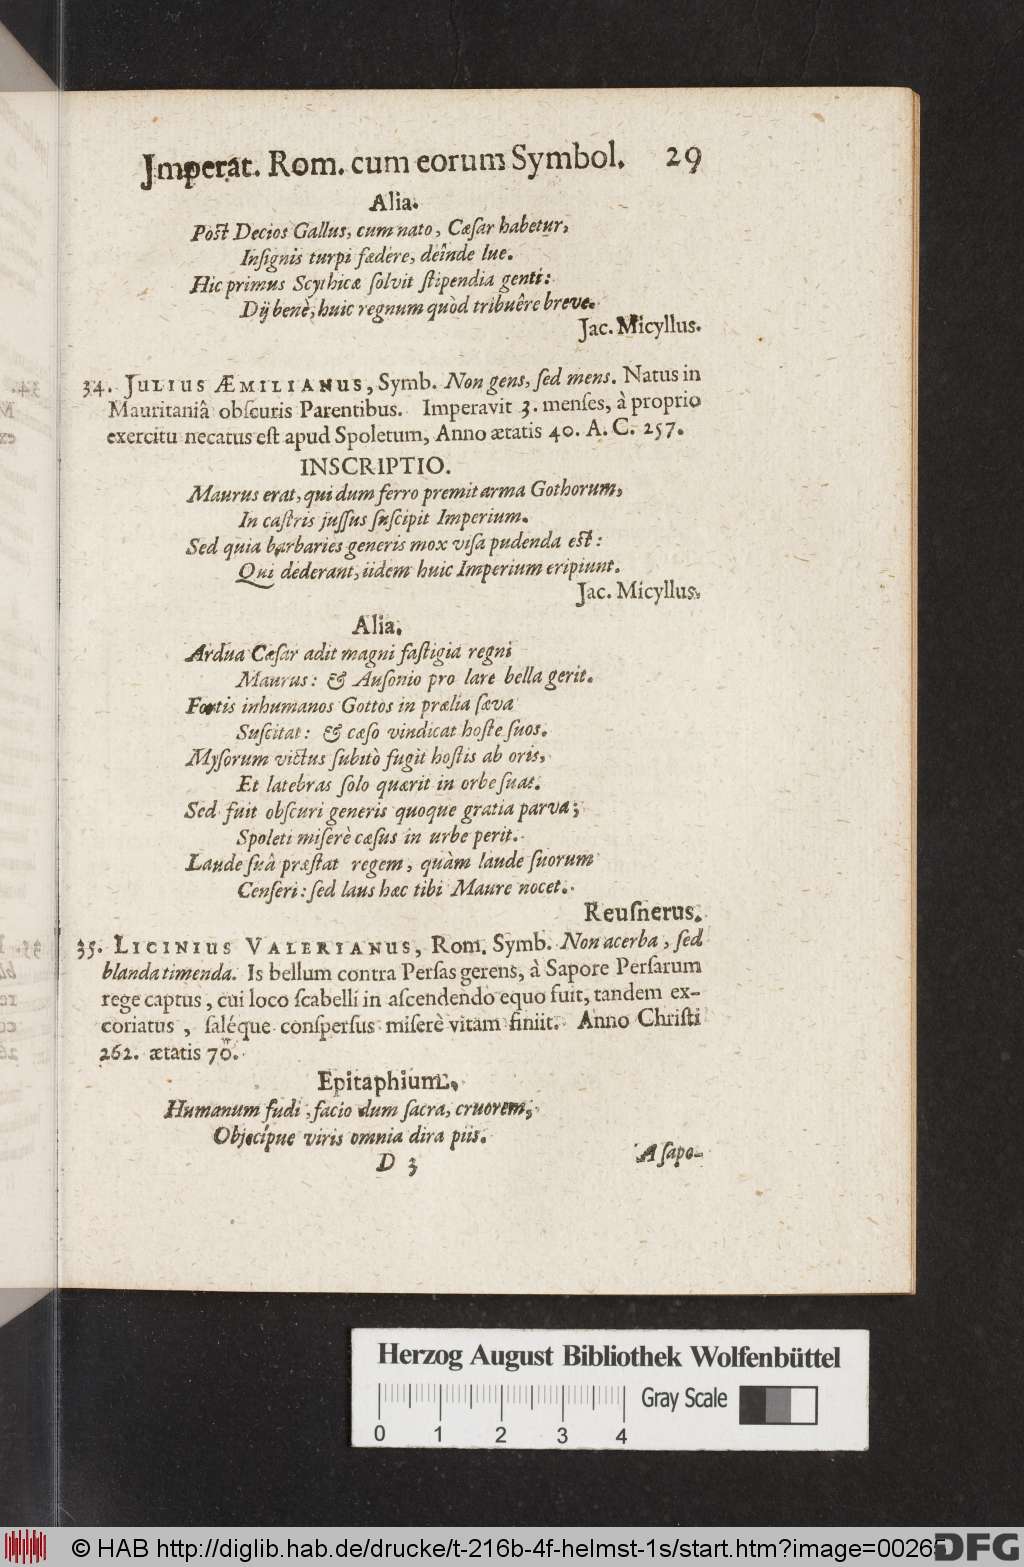 Jmperat. Rom. cum eorum Symbol. 29
Alia.
Post Decios Gallus, cum nato, Cæſar habetur,
Inſignis turpi fœdere, deînde lue.
Hic primus Scythicæ ſolvit ſtipendia genti:
Dij benè, huic regnum quòd tribuêre breve.
Jac. Micyllus.
34. JULIUS ÆMILIANUS, Symb. Non gens, ſed mens. Natus in
Mauritaniâ obſcuris Parentibus. Imperavit 3. menſes, à proprio
exercitu necatus eſt apud Spoletum, Anno ætatis 40. A. C. 257.
INSCRIPTIO.
Maurus erat, qui dum ferro premit arma Gothorum,
In caſtris juſſus ſuſcipit Imperium.
Sed quia barbaries generis mox viſa pudenda est:
Qui dederant, iidem huic Imperium eripiunt.
Jac. Micyllus.
Alia.
Ardua Cæſar adit magni faſtigia regni
Maurus: & Auſonio pro lare bella gerit.
Fortis inhumanos Gottos in prælia ſæva
Suſcitat: & cæſo vindicat hoſte ſuos.
Myſorum victus ſubitò fugit hoſtis ab oris,
Et latebras ſolo quærit in orbe ſuas.
Sed fuit obſcuri generis quoque gratia parva;
Spoleti miſerè cæſus in urbe perit.
Laude ſuâ præſtat regem, quàm laude ſuorum
Cenſeri: ſed laus hæc tibi Maure nocet.
Reuſnerus.
35. LICINIUS VALERIANUS, Rom. Symb. Non acerba, ſed
blanda timenda. Is bellum contra Perſas gerens, à Sapore Perſarum
rege captus, cui loco ſcabelli in aſcendendo equo fuit, tandem ex-
coriatus, saléque conſperſus miſerè vitam finiit. Anno Chriſti
262. ætatis 70.
Epitaphium.
Humanum fudi, facio dum ſacra, cruorem,
Objecíque viris omnia dira piis.
D 3 A ſapo-
Herzog August Bibliothek Wolfenbüttel
Gray Scale
0 1 2 3 4
© HAB http://diglib.hab.de/drucke/t-216b-4f-helmst-1s/start.htm?image=00265
DFG